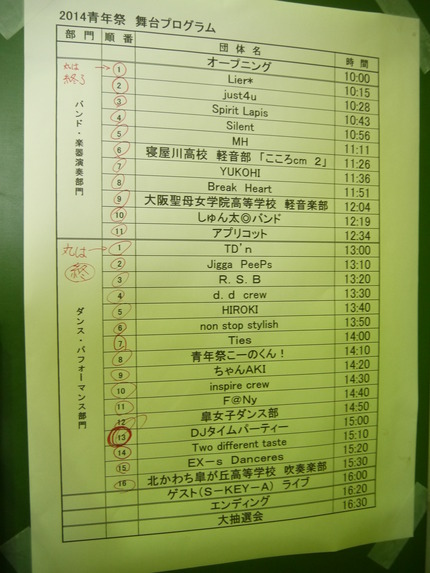 2014青年祭 舞台プログラム
部門 順番 団体名 時間
オープニング 10:00
丸は終了
バンド・楽器演奏部門
1 Lier* 10:15
2 just4u 10:28
3 Spirit Lapis 10:43
4 Silent 10:56
5 MH 11:11
6 寝屋川高校 軽音部 「こころcm 2」 11:26
7 YUKOHI 11:36
8 Break Heart 11:51
9 大阪聖母女学院高等学校 軽音楽部 12:04
10 しゅん太◎バンド 12:19
11 アプリコット 12:34
丸は終
ダンス・パフォーマンス部門
1 TD'n 13:00
2 Jigga PeePs 13:10
3 R.S.B 13:20
4 d.d crew 13:30
5 HIROKI 13:40
6 non stop stylish 13:50
7 Ties 14:00
8 青年祭こーのくん! 14:10
9 ちゃんAKI 14:20
10 inspire crew 14:30
11 F@Ny 14:40
12 皐女子ダンス部 14:50
13 DJタイムパーティー 15:00
14 Two different taste 15:10
15 EX-s Danceres 15:20
16 北かわち皐が丘高等学校 吹奏楽部 15:30
ゲスト(S-KEY-A) ライブ 16:00
エンディング 16:20
大抽選会 16:30